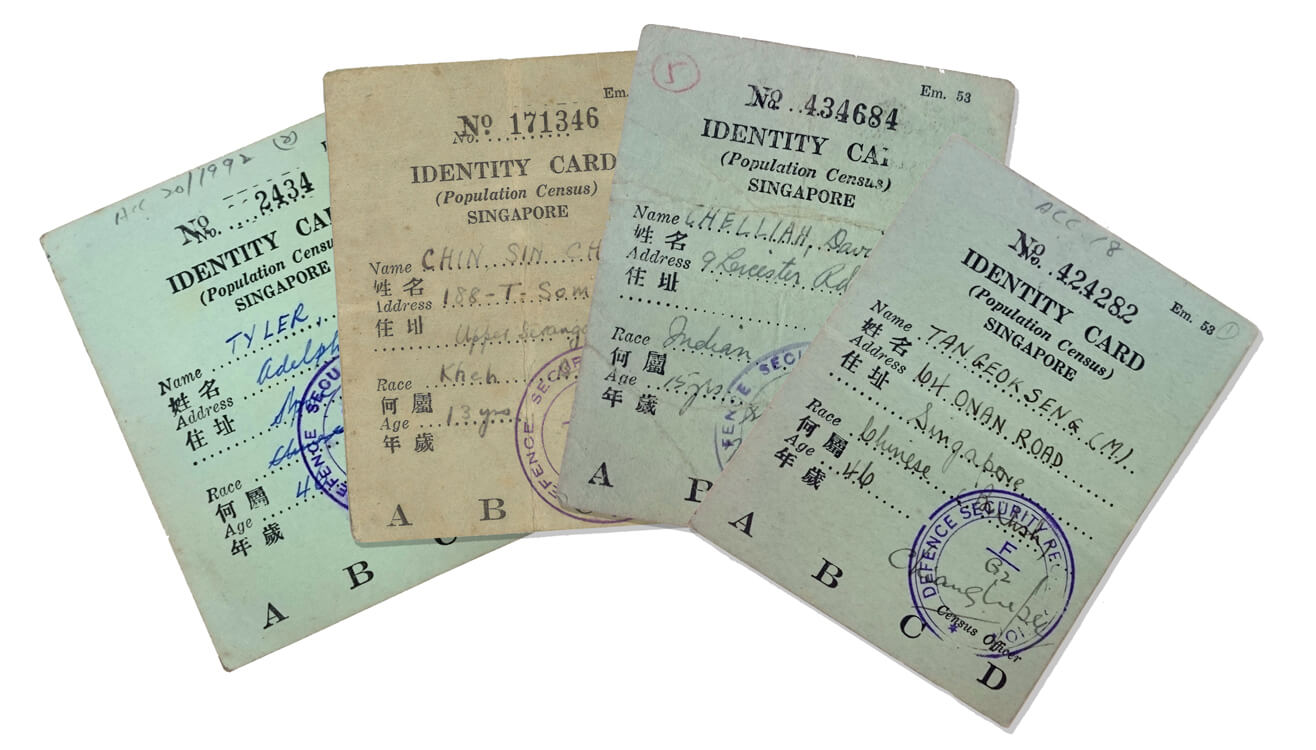 Acc 20/1992 (2)
No 2434
No.
IDENTITY CA
(Population Census
SINGAPORE
Name TYLER,
姓名 Adelph
Address
住址
Race
何屬
Age 4
年歲
A B C
Em.
No 171346
No.
IDENTITY CARD
(Population Census)
SINGAPORE
Name CHIN SIN CH
姓名
Address 188-T-Som
住址 Upper Serango
Race Kheh
何屬
Age 13 yrs
年歲
DEFENCE SECUR
A B C
Em. 53
No 434684
No.
IDENTITY CA
(Population Census)
SINGAPORE
Name CHELLIAH, Davi
姓名
Address 9 Leicester Rd
住址
Race Indian
何屬
Age 15 yrs
年歲
DEFENCE SECUR
A B
ACC 18
Em. 53 1
No 424282
No.
IDENTITY CARD
(Population Census)
SINGAPORE
Name TAN GEOK SENG (M)
姓名
Address 64 ONAN ROAD
住址 Singapore
Race Chinese
何屬
Age 46
年歲
DEFENCE SECURITY REC
F
G2
Census Officer
A B C D